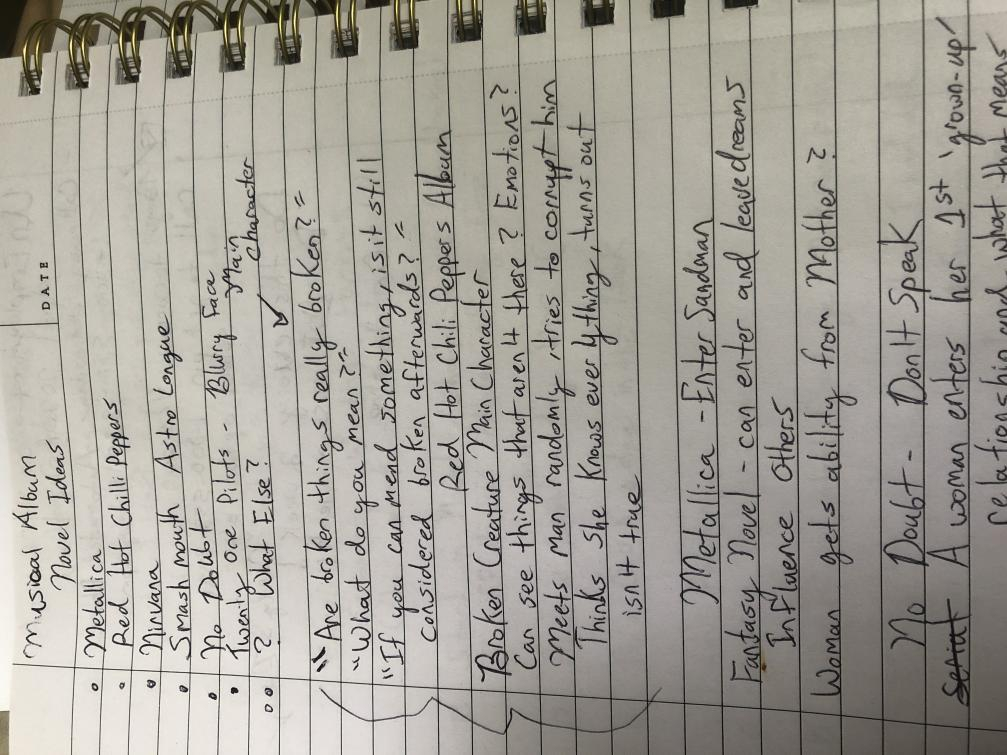 Musical Album
Novel Ideas
DATE
• Metallica
• Red Hot Chilli Peppers
• Nirvana
• Smash mouth Astro Longue
• No Doubt
• Twenty One Pilots - Blurry Face
Main
Character
? What Else?
"Are broken things really broken?"
"What do you mean?"
"If you can mend something, is it still
considered broken afterwards?"
Red Hot Chili Peppers Album
Broken Creature Main Character
Can see things that aren't there? Emotions?
Meets man randomly, tries to corrypt him
Thinks she knows everything, turns out
isn't true
Metallica - Enter Sandman
Fantasy Novel - can enter and leave dreams
Influence others
Woman gets ability from Mother?
No Doubt - Don't Speak
A woman enters her 1st 'grown-up'
relationship and what that means